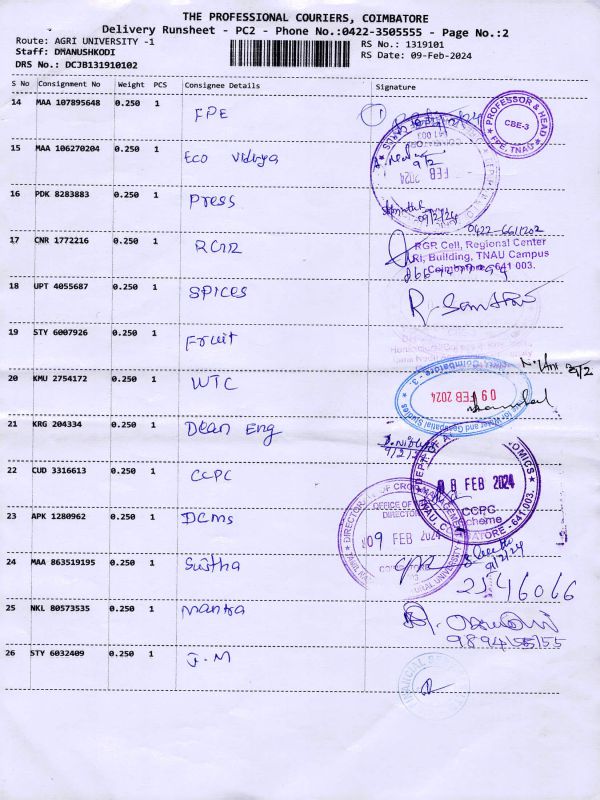 THE PROFESSIONAL COURIERS, COIMBATORE
Delivery Runsheet - PC2 - Phone No.:0422-3505555 - Page No.:2
Route: AGRI UNIVERSITY -1
Staff: DMANUSHKODI
DRS No.: DCJB131910102
RS No.: 1319101
RS Date: 09-Feb-2024
S No Consignment No Weight PCS Consignee Details Signature
14 MAA 107895648 0.250 1 FPE
PROFESSOR & HEAD
CBE-3
FPE, TNAU
15 MAA 106270204 0.250 1 Eco Vidhya
641 003
FEB 2024
9/2
16 PDK 8283883 0.250 1 Press
09/2/24
0422-6611202
17 CNR 1772216 0.250 1 RCAR
RGR Cell, Regional Center
RI, Building, TNAU Campus
Coimbatore-641 003.
18 UPT 4055687 0.250 1 SPICES
R. Santhosi
19 STY 6007926 0.250 1 Fruit
20 KMU 2754172 0.250 1 WTC
09 FEB 2024
Water and Geospatial Studies
21 KRG 204334 0.250 1 Dean Eng
9/2/24
22 CUD 3316613 0.250 1 CCPC
FEB 2024
CCPC
Scheme
TNAU, COIMBATORE - 641 003.
23 APK 1280962 0.250 1 DCMS
DIRECTORATE OF CROP MANAGEMENT
OFFICE OF
DIRECTOR
09 FEB 2024
24 MAA 863519195 0.250 1 Sustha
9/2/24
2546066
25 NKL 80573535 0.250 1 Mantra
9894455155
26 STY 6032409 0.250 1 J.M